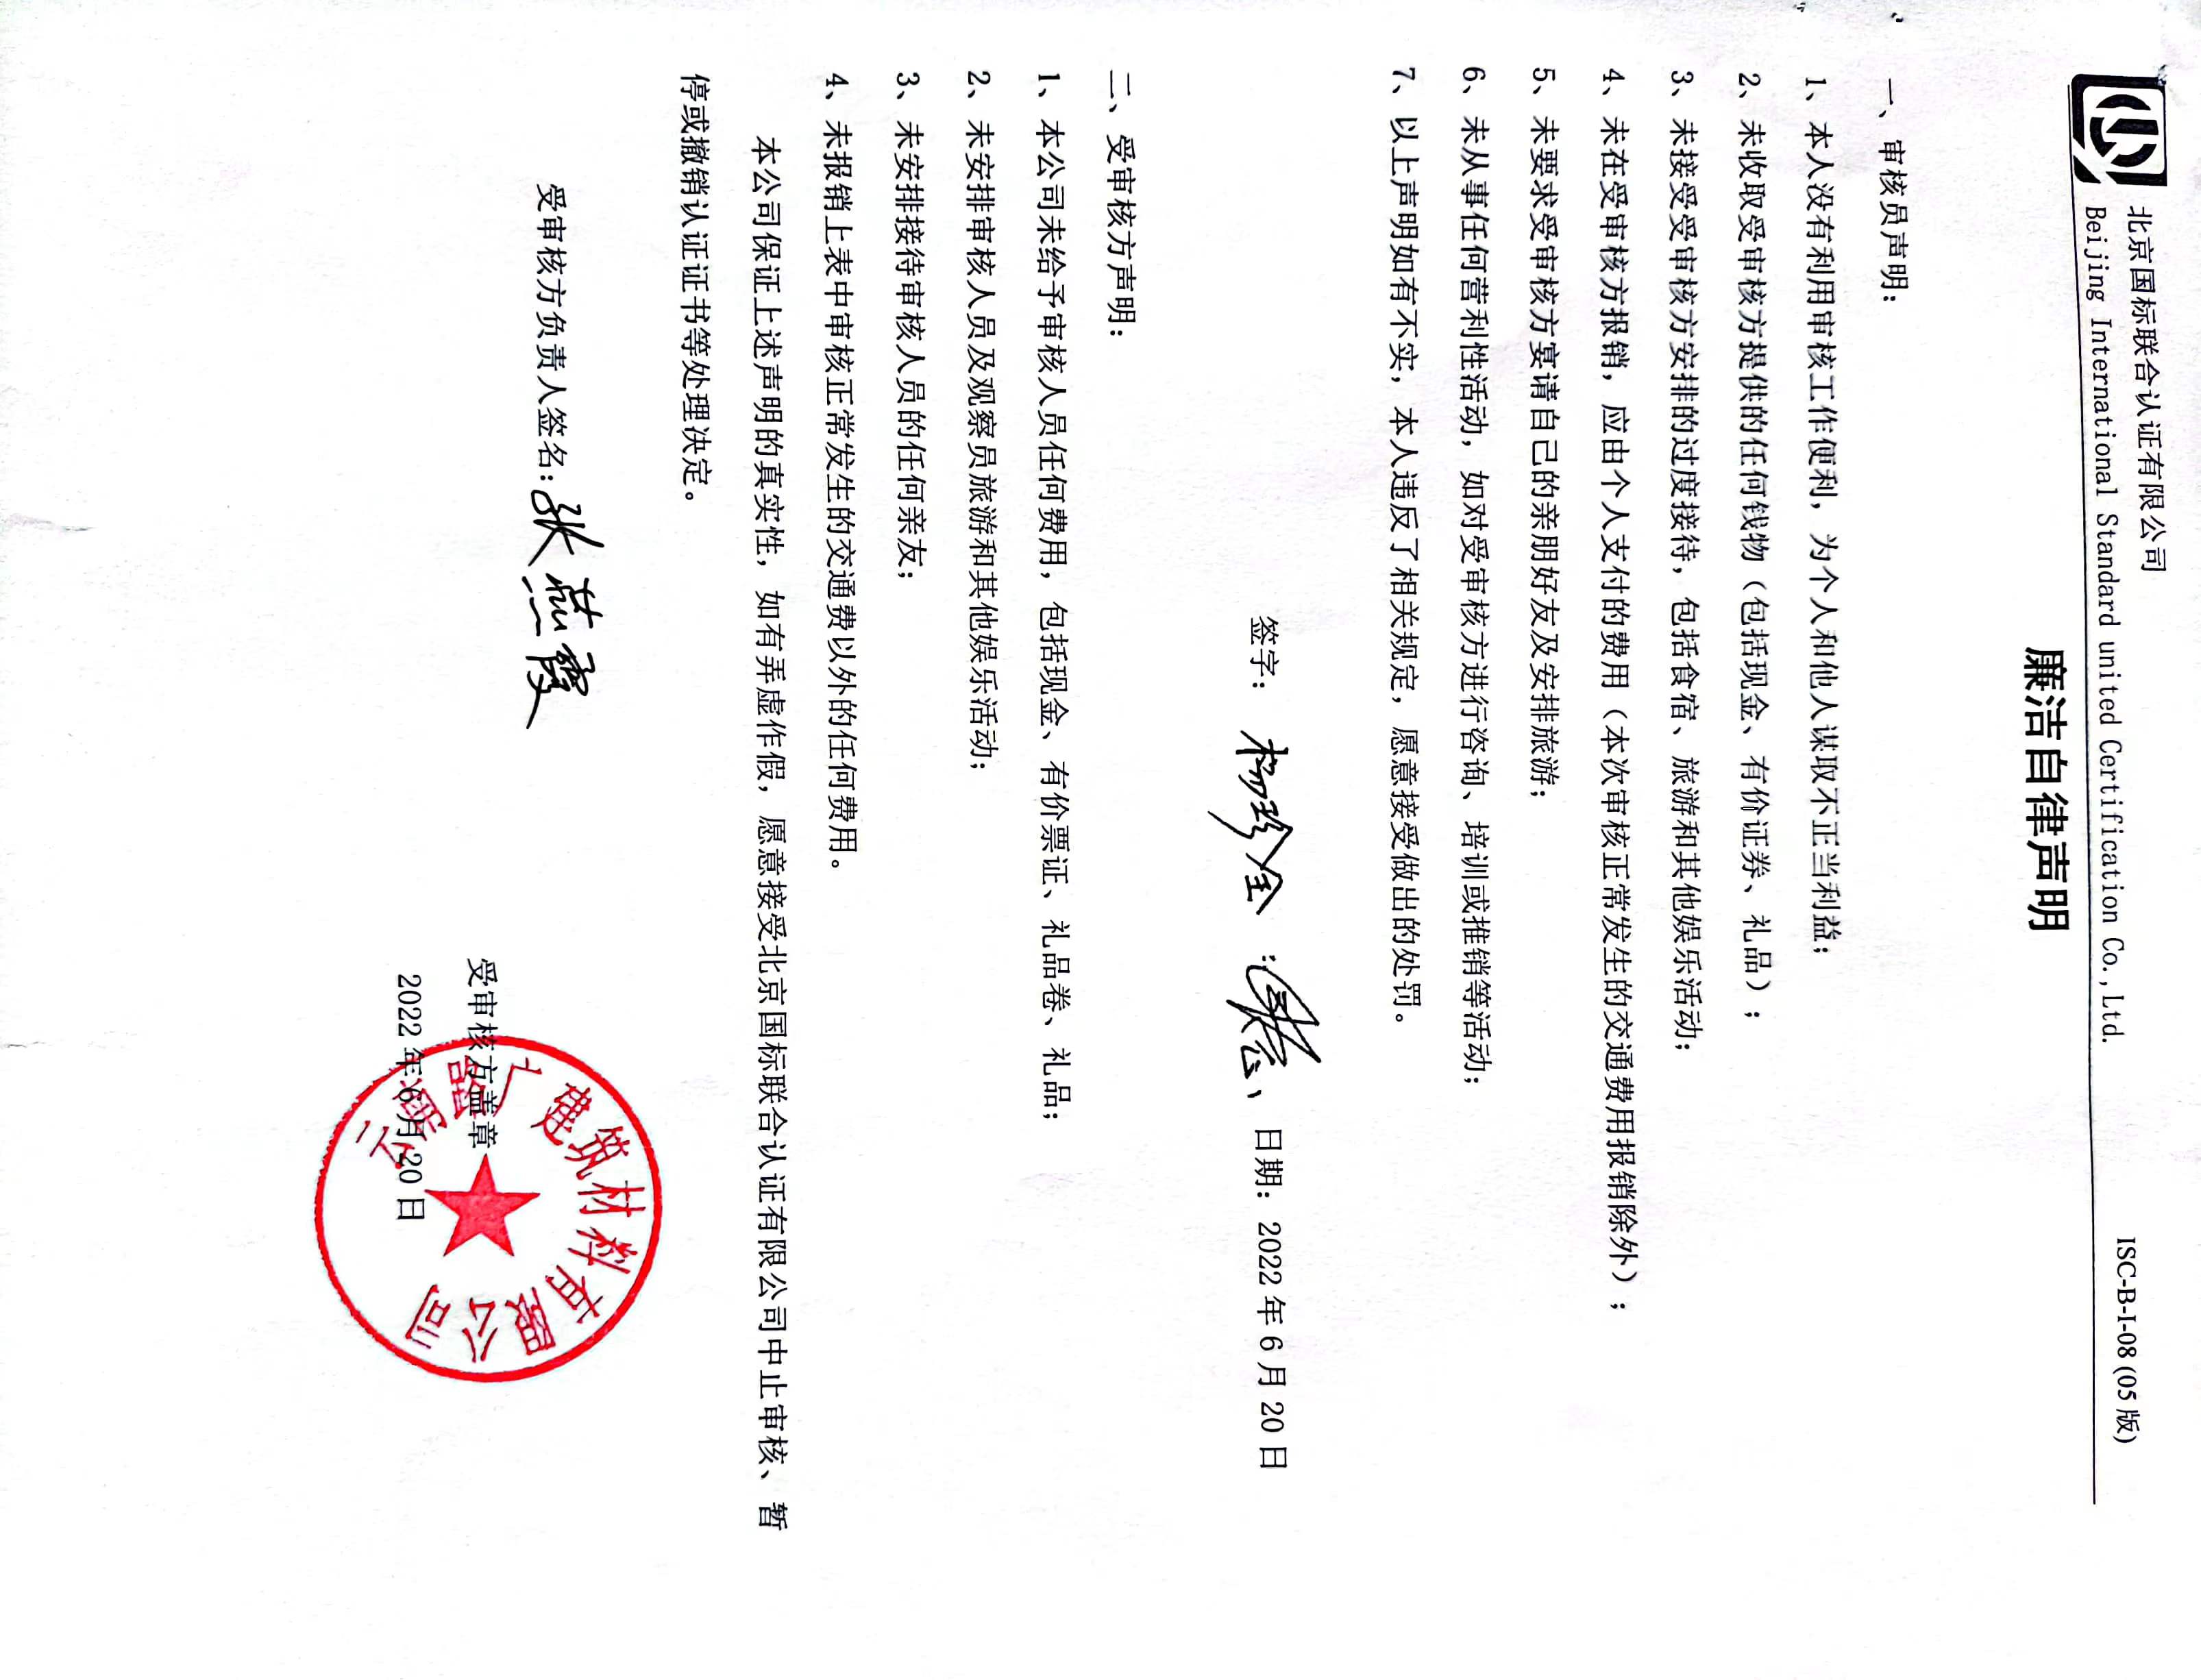 北京国标联合认证有限公司
ISC-B-I-08(05 版)
Beijing International Standard united Certification Co.,Ltd.
廉洁自律声明
一、审核员声明：
1、本人没有利用审核工作便利，为个人和他人谋取不正当利益；
2、未收取受审核方提供的任何钱物（包括现金、有价证券、礼品）；
3、未接受受审核方安排的过度接待，包括食宿、旅游和其他娱乐活动；
4、未在受审核方报销，应由个人支付的费用（本次审核正常发生的交通费用报销除外）；
5、未要求受审核方宴请自己的亲朋好友及安排旅游；
6、未从事任何营利性活动，如对受审核方进行咨询、培训或推销等活动；
7、以上声明如有不实，本人违反了相关规定，愿意接受做出的处罚。
签字： 杨珍全 日期：2022 年 6 月 20 日
二、受审核方声明：
1、本公司未给予审核人员任何费用，包括现金、有价票证、礼品卷、礼品；
2、未安排审核人员及观察员旅游和其他娱乐活动；
3、未安排接待审核人员的任何亲友；
4、未报销上表中审核正常发生的交通费以外的任何费用。
本公司保证上述声明的真实性，如有弄虚作假，愿意接受北京国标联合认证有限公司中止审核、暂
停或撤销认证证书等处理决定。
受审核方负责人签名：张燕霞
受审核方盖章
2022 年 6 月 20 日
云南路广建筑材料有限公司